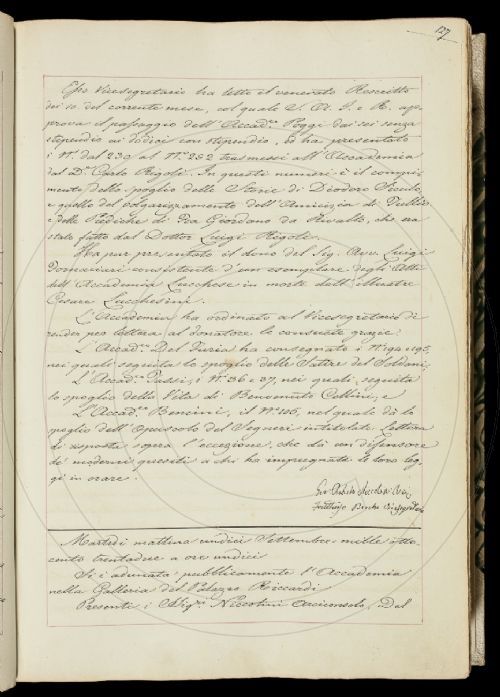 127
Esso Vicesegretario ha letto il venerato Rescritto
dei 10. del corrente mese, col quale S. A. I. e R. ap-
prova il passaggio dell'Accad.co Poggi dai sei senza
stipendio ai dodici con stipendio, ed ha presentato
i N. dal 230 al N.o 252 trasmessi all'Accademia
dal D. Carlo Rigoli. In questi numeri è il compi-
mento dello spoglio delle Storie di Diodoro Siculo,
e quello del volgarizzamento dell'Amicizia di Tullio
e delle Prediche di Fra Giordano da Rivalto, che era
stato fatto dal Dottor Luigi Rigoli.
Ha pur presentato il dono del Sig. Avv. Luigi
Fornaciari consistente d'un esemplare degli Atti
dell'Accademia Lucchese in morte dell'illustre
Cesare Lucchesini.
L'Accademia ha ordinato al Vicesegretario di
render per lettera al donatore le consuete grazie.
L'Accad.co Del Furia ha consegnato i N.i 194 e 195,
nei quali seguita lo spoglio delle Satire del Soldani,
L'Accad.co Tassi, i N. 36 e 37, nei quali seguita
lo spoglio della Vita di Benvenuto Cellini, e
L'Accad.co Bencini, il N.o 106, nel quale dà lo
spoglio dell'Opuscolo del Segneri intitolato Lettera
di risposta sopra l'eccezione, che dà un difensore
de' moderni quietisti a chi ha impugnate le loro leg-
gi in orare.
Martedì mattina undici Settembre mille otto
cento trentadue a ore undici
Si è adunata pubblicamente l'Accademia
nella Galleria del Palazzo Riccardi
Presenti i Sig.ri Niccolini Arciconsolo, Del